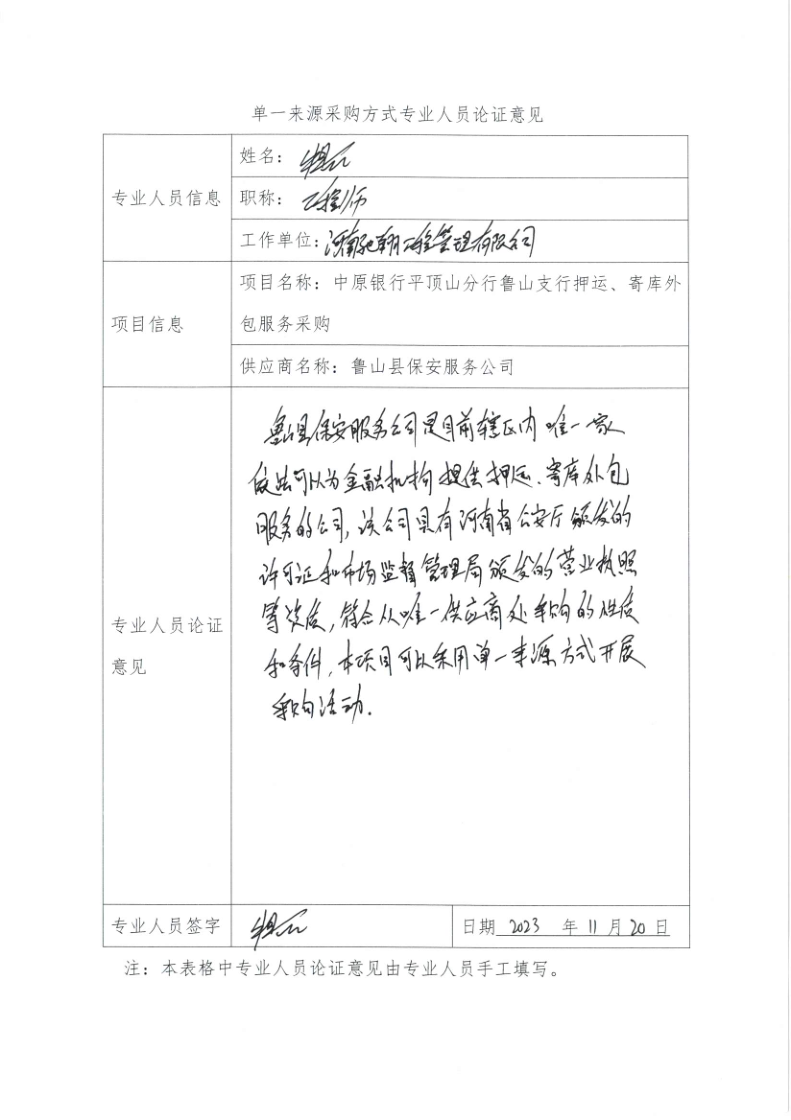 单一来源采购方式专业人员论证意见
专业人员信息
姓名：
职称：工程师
工作单位：河南驰翔工程管理有限公司
项目信息
项目名称：中原银行平顶山分行鲁山支行押运、寄库外
包服务采购
供应商名称：鲁山县保安服务公司
专业人员论证
意见
鲁山县保安服务公司是目前辖区内唯一一家
合法可以为金融机构提供押运、寄库外包
服务的公司，该公司具有河南省公安厅颁发的
许可证和市场监督管理局颁发的营业执照
等资质，符合从唯一供应商处采购的性质
和条件，本项目可以采用单一来源方式开展
采购活动.
专业人员签字
日期 2023 年 11 月 20 日
注：本表格中专业人员论证意见由专业人员手工填写。